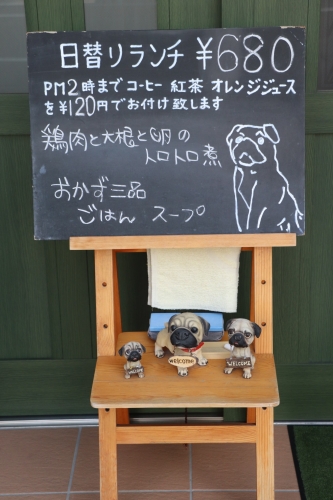 日替リランチ ¥680
PM2時までコーヒー 紅茶 オレンジジュース
を¥120円でお付け致します
鶏肉と大根と卵の
トロトロ煮
おかず三品
ごはん スープ
WELCOME
WELCOME
WELCOME